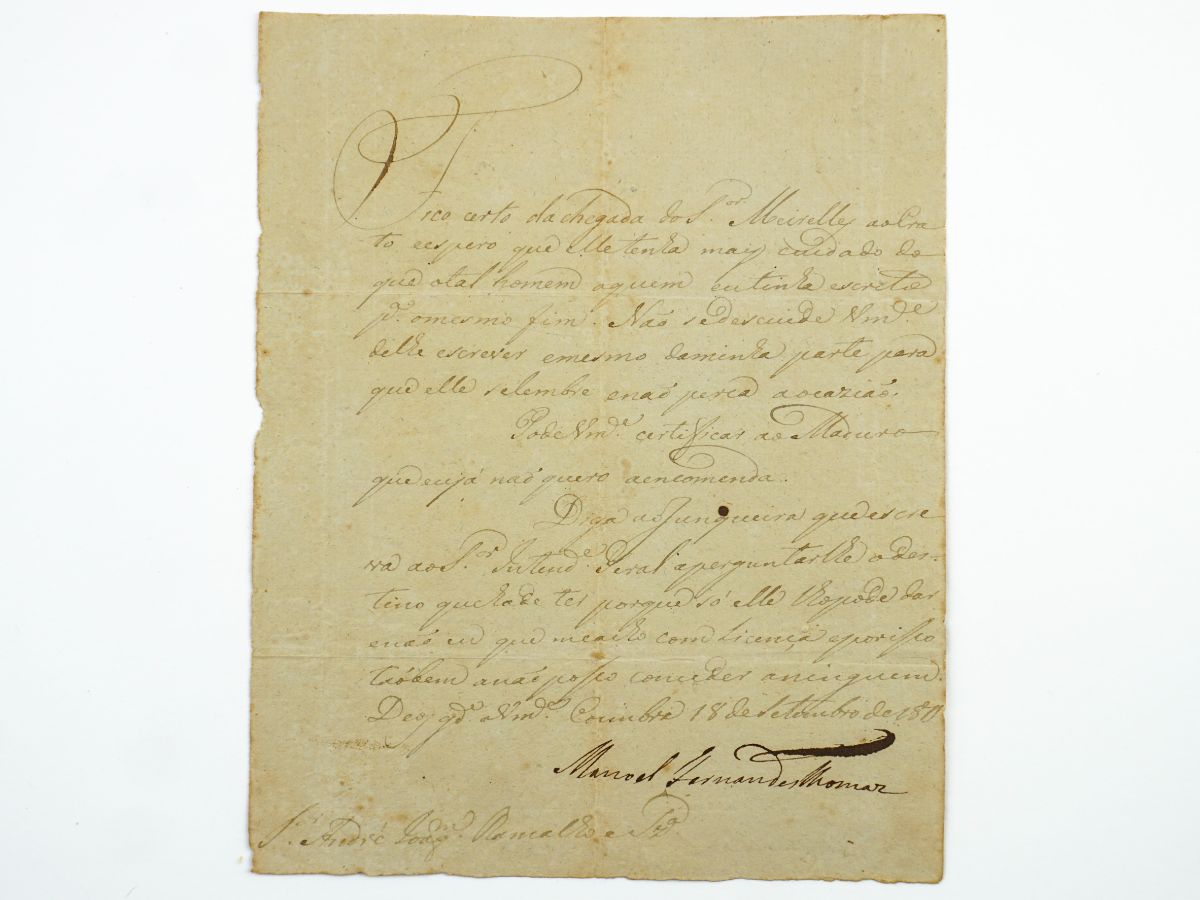 Fico certo da chegada do S.or Meirelles ao Cra-
to e espero que elle tenha mais cuidado do
que o tal homem a quem eu tinha escrito
p.a o mesmo fim. Não se descuide Vm.ce
de lhe escrever e mesmo da minha parte para
que elle se lembre e não perca a occazião.
Pode Vm.ce certificar ao Maduro
que eu já não quero a encomenda.
Diga ao Junqueira que escre
va ao S.r Intend.e Geral a perguntar lhe o des-
tino que ha de ter porque só elle lho pode dar
e não eu que me acho com Licença e por isso
tãobem a não posso conceder a ninguem.
Deos g.de a Vm.ce Coimbra 18 de Setembro de
Manoel Fernandes Thomaz
S.r André Joaq.m Ramalho e